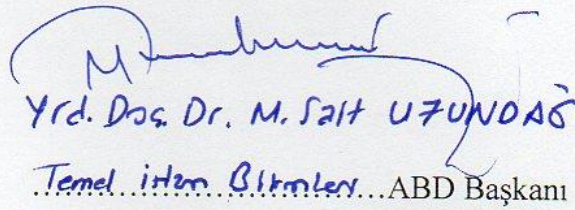 Yrd. Doç. Dr. M. Sait UZUNDAĞ
Temel İslam Bilimleri ABD Başkanı